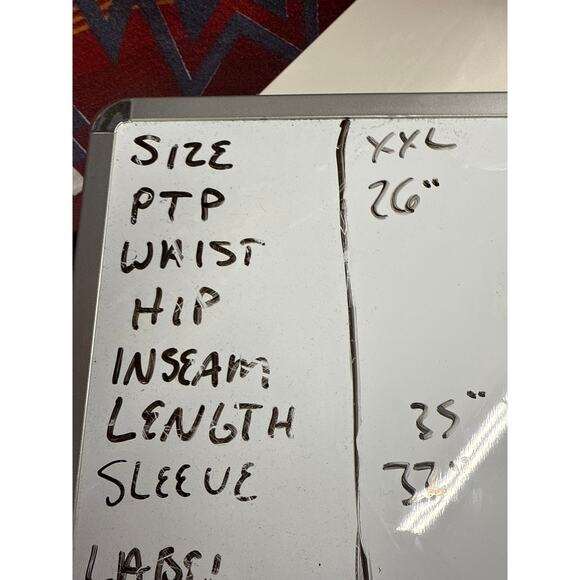 SIZE XXL
PTP 26"
WAIST
HIP
INSEAM
LENGTH 35"
SLEEVE
LABEL